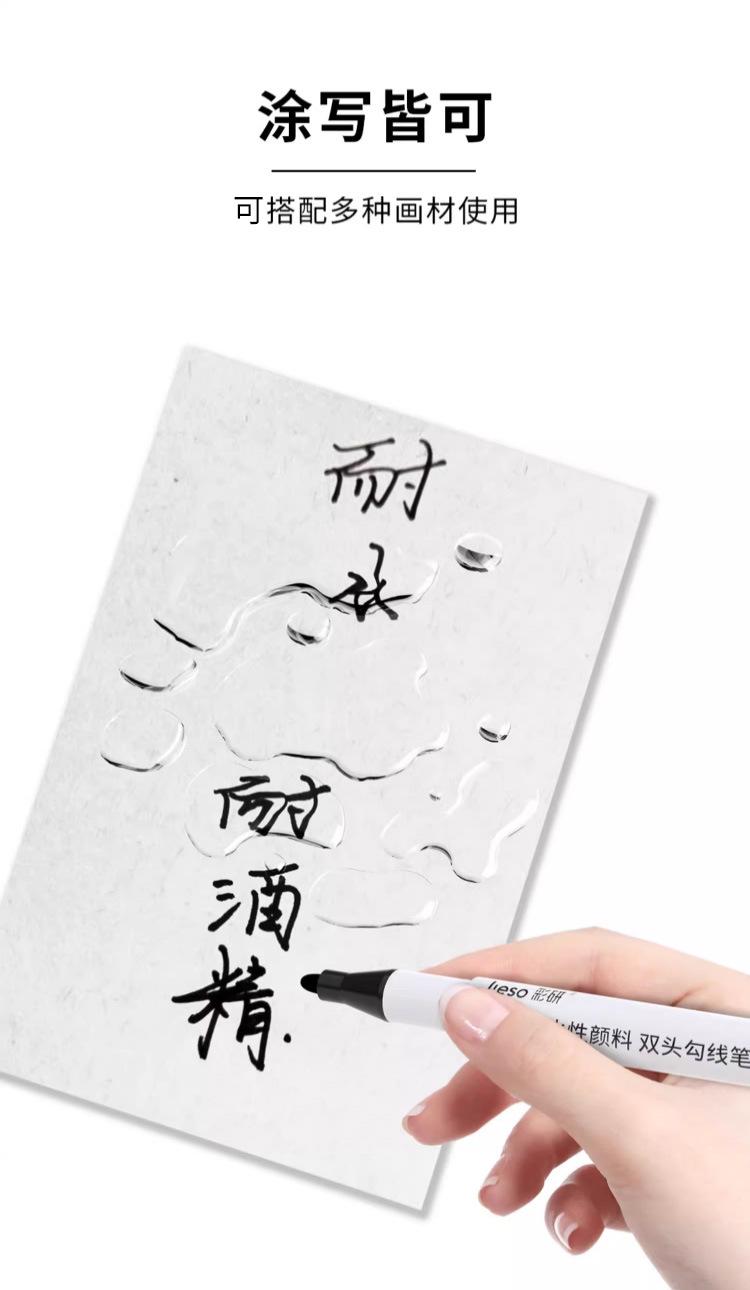 涂写皆可
可搭配多种画材使用
耐
水
耐
酒
精.
lieso 彩研
水性颜料 双头勾线笔